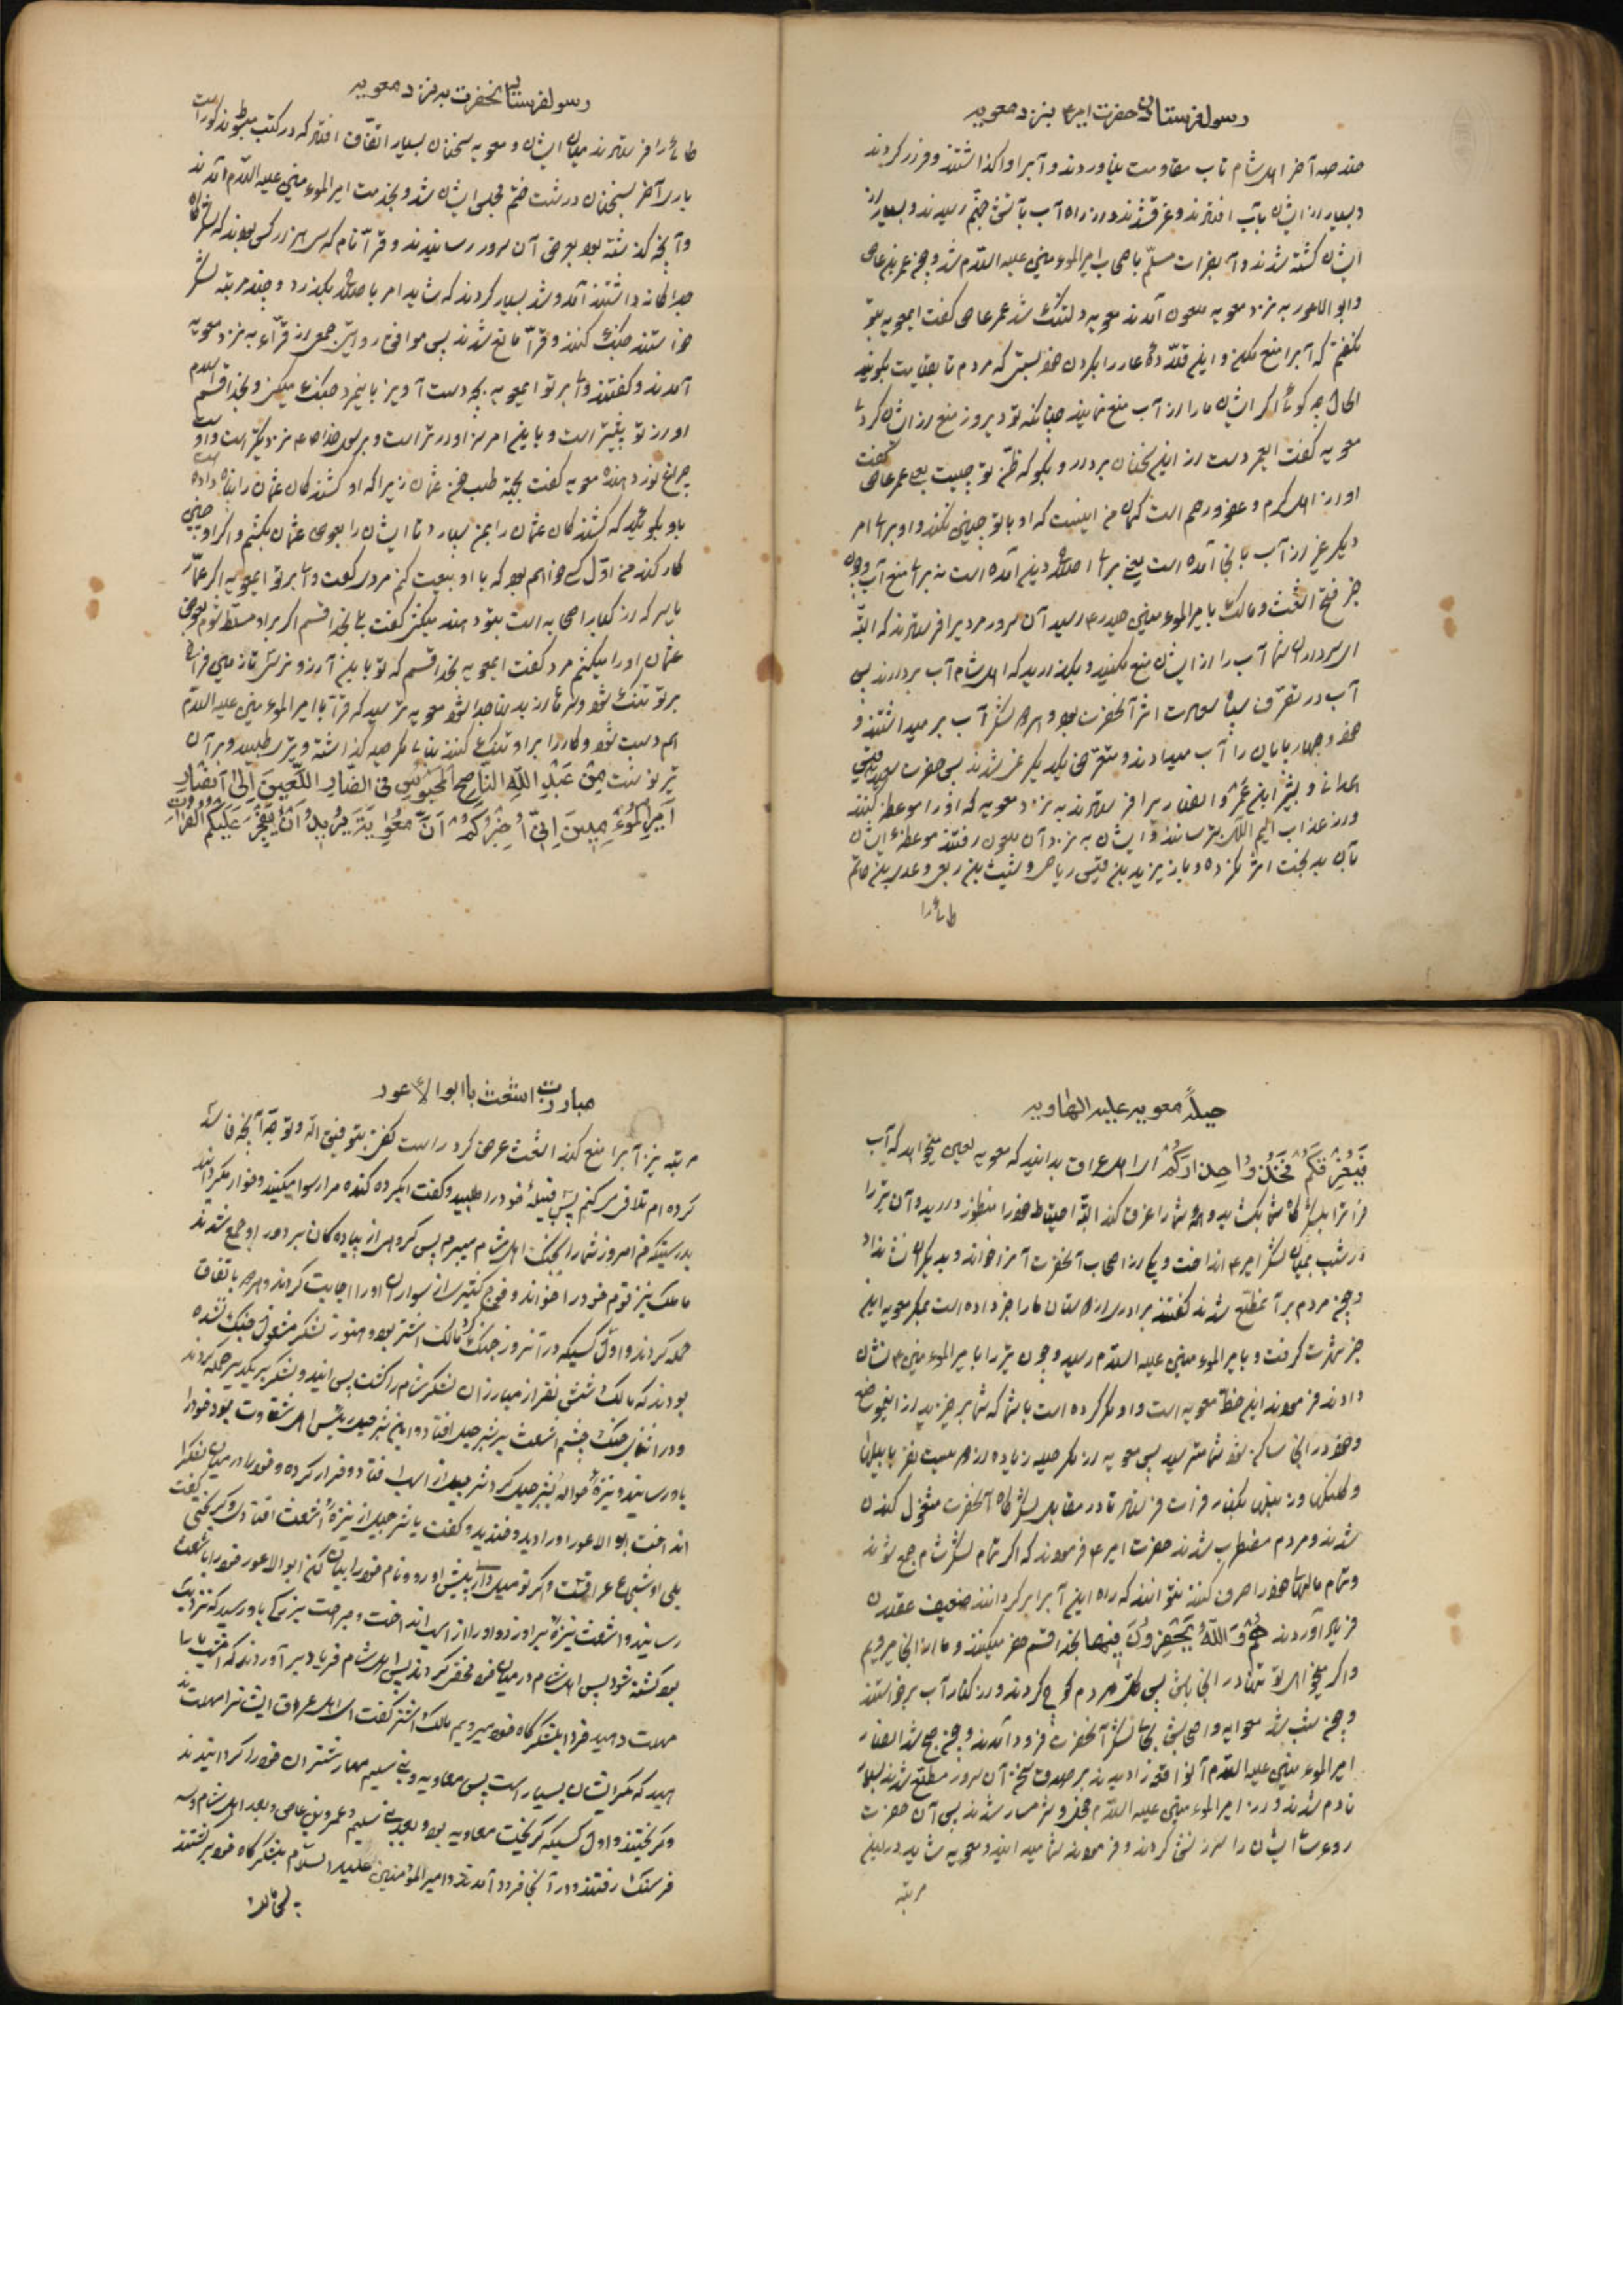 رسول فرستادن حضرت امیر ع بنزد معویه
چند صد آخر اهل شام تاب مقاومت نیاوردند و آبرا واکذاشتند و فرار کردند
و بسیار از ایشان بآب افتادند و غرق شدند و از راه آب بآتش جهنم رسیدند و بسیار از
ایشان کشته شدند و آب فرات مسلّم باصحاب امیر المؤمنین علیه السلام شد و چون عمر بن عاص
و ابو الاعور به نزد معویه ملعون آمدند معویه دلتنک شد عمر عاص کفت ایمعویه بتو
نکفتم که آبرا منع مکن و این قلاده عار را بکردن خود مبند که مردم تا بقیامت بکویند
الحال چه کوئی اکر ایشان ما را از آب منع نمایند چنانکه تو دیروز منع از ایشان کردی
معویه کفت ایعمر دست از این سخنان بردار و بکو که ظن تو چیست بعلی عمر عاص کفت
او از اهل کرم و عفو و رحم است کمان من اینست که او با تو چنین نکند و او برای امر
دیکر غیر از آب بانجا آمده است یعنی برای اصلاح دین آمده است نه برای منع آب و چون
خبر فتح اشعث و مالک بامیر المؤمنین حیدر ع رسید آن سرور مردیرا فرستادند که البته
ای سرداران شما آب را از ایشان منع مکنید و بکذارید که اهل شام آب بردارند پس
آب در تصرف سپاه نصرت اثر آنحضرت بود و هر دو لشکر آب بر میداشتند و
خود و چهارپایان را آب میدادند و متعرض یکدیکر نمیشدند پس حضرت سعید بن قیس
همدانی و بشیر ابن عمرو انصاریرا فرستادند به نزد معویه که او را موعظه کنند
و از عذاب الیم الهی بترسانند و ایشان به نزد آن ملعون رفتند موعظه ایشان
بآن بدبخت اثر نکرده و باز یزید بن قیس ریاحی و شبث بن ربعی و عدی بن حاتم
طائیرا
رسول فرستادن آنحضرت به نزد معویه
طائیرا فرستادند میان ایشان و معویه سخنان بسیار اتفاق افتاد که در کتب مبسوطه مذکور است
باری آخر بسخنان درشت ختم مجلس ایشان شد و بخدمت امیر المؤمنین علیه السلام آمدند
و آنچه کذشته بود بعرض آن سرور رسانیدند و قرّآء تمام که سی هزار کس بودند که لشکرکاه
جداکانه داشتند آمد و شد بسیار کردند که شاید امر باصلاح بکذرد و چند مرتبه لشکر
خواستند جنک کنند و قرّآء مانع شدند پس موافق روایتی جمعی از قرّآء به نزد معویه
آمدند و کفتند وای بر تو ایمعویه بچه دست آویز با اینمرد جنک میکنی و بخدا قسم
او از تو بهتر است و باین امر سزاوارتر است و برسول خدا ص نزدیکتر است و او
معویه کفت بجهة طلب خون عثمان زیرا که او کشندکان عثمان را پناه داده
باو بکوئید که کشندکان عثمان را بمن سپارد تا ایشان را بعوض عثمان بکشم و اکر او چنین
کار کند من اول کسی خواهم بود که با او بیعت کنم مردی کفت وای بر تو ایمعویه اکر عمّار
یاسر که از کبار اصحابه است بتو دهند میکشی کفت بلی بخدا قسم اکر بر او مسلّط شوم بعوض
عثمان او را میکشم مرد کفت ایمعویه بخدا قسم که تو باین آرزو نرسی تا زمین فراخ
بر تو تنک شود و سرها از بدنها جدا شود معویه ترسید که قرّآء با امیر المؤمنین علیه السلام
همدست شوند و کار را بر او تنک کنند بنای مکر و حیله کذاشته و تیری طلبید و بر آن
تیر نوشت مِنْ عَبْدِ اللّٰهِ النَّاصِحِ الْمَحْبُوسِ فِی الضَّارِ اللَّعِینِ اِلیٰ اَنْصَارِ
اَمِیرِ الْمُؤْمِنِینَ اِنِّی اُخْبِرُکُمْ اَنَّ مُعٰوِیَةَ یُرِیدُ اَنْ یُفَجِّرَ عَلَیْکُمُ الْفُرَاتَ
حیلهٔ معویه علیه الهاویه
فَیُغْرِقَکُمْ فَخُذُوا حِذْرَکُمْ ای اهل عراق بدانید که معویه لعین میخواهد که آب
فرات را بلشکرکاه شما بکشاید و همه شما را غرق کند البته احتیاط خود را منظور دارید و آن تیر را
در شب بمیان لشکر امیر ع انداخت و یکی از اصحاب آنحضرت آنرا خواند و بدیکران نشان داد
و چون مردم بر آن مطلع شدند کفتند برادری از دوستان ما را خبر داده است بمکر معویه این
خبر شهرت کرفت و بامیر المؤمنین علیه السلام رسید و چون تیر را بامیر المؤمنین ع نشان
دادند فرمودند این خط معویه است و او مکر کرده است با شما که شما برخیزید از اینموضع
و خود در انجا ساکن شود شما مترسید پس معویه از مکر و حیله زیاده از دویست نفر با بیلها
و کلنکها و زنبیلها بکنار فرات فرستاد تا در مقابل لشکرکاه آنحضرت مشغول کندن
شدند و مردم مضطرب شدند حضرت امیر ع فرمودند که اکر تمام لشکر شام جمع شوند
و تمام مالهای خود را صرف کنند نتوانند که راه این آبرا بر کردانند ضعیف عقلان
فریاد آوردند هُمْ وَ اللّٰهِ یَحْفِرُونَ فِیهَا بخدا قسم حفر میکنند و ما از انجا میرویم
و اکر میخواهی تو تنها در انجا باش پس مردم کوچ کردند و از کنار آب برخواستند
و چون شب شد معویه و اصحابش بجای لشکر آنحضرت فرود آمدند و چون صبح شد انصار
امیر المؤمنین علیه السلام آن واقعه را دیدند بر صدق سخن آن سرور مطلع شدند بسیار
نادم شدند و از امیر المؤمنین علیه السلام خجل و شرمسار شدند پس آن حضرت
روی بایشان را سرزنش کردند و فرمودند شما میدانید و معویه شاید در این
مرتبه
مبادرت اشعث با ابو الاعور
مرتبه نیز آبرا منع کند اشعث عرض کرد راست کفتی بتوفیق اله و توجه آنچه فاسد
کرده ام تلافی میکنم پس قبیلهٔ خود را طلبید و کفت ایکروه کنده مرا رسوا میکنید و خوار مکردانید
بدرستیکه من امروز شما را بجنک اهل شام میبرم پس کروهی از پیاده کان بر دور او جمع شدند
مالک نیز قوم خود را خواند و فوج کثیری از سواران او را اجابت کردند و هر دو باتفاق
حمله کردند و اول کسیکه در آنروز جنک کرد مالک اشتر بود و هنوز لشکر مشغول جنک نشده
بودند که مالک شش نفر از مبارزان لشکر شام را کشت پس ایند و لشکر بر یکدیکر حمله کردند
و در اثنای جنک چشم اشعث بر شرحبیل افتاد و این شرحبیل رئیس اهل شقاوت بود خود را
باو رسانید و نیزه حوالهٔ شرحبیل کرد شرحبیل از اسب افتاد و فرار کرده و خود را در میان لشکر
انداخت ابو الاعور او را دید و خندید و کفت یا شرحبیل از نیزهٔ اشعث افتادی و کریختی کفت
بلی او شجاع عراقست و اکر تو میل داری پیش او رو و نام خود را بیان کن ابو الاعور خود را باشعث
رسانید و اشعث نیزه بر او زد و او را از اسب انداخت و جراحت بزرکی باو رسید که نزدیک
بود کشته شود پس اهل شام در میان خود محضر کردند پس اهل شام فریاد بر آوردند که امشب ما را
مهلت دهید فردا بلشکرکاه خود میرویم مالک اشتر کفت ای اهل عراق ایشانرا مهلت
مدهید که مکر ایشان بسیار است پس معاویه و بنی سلیم مهار شتران خود را کردانیدند
و کریختند و اول کسیکه کریخت معاویه بود و بعد بنی سلیم و عمرو بن عاص و بعد اهل شام و سه
فرسنک رفتند و در آنجا فرود آمدند و امیر المؤمنین علیه السلام بلشکرکاه خود برکشتند